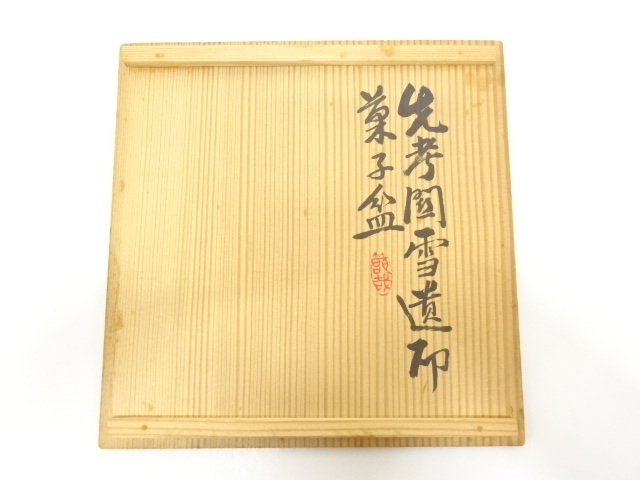 先考関雪遺印
菓子盆